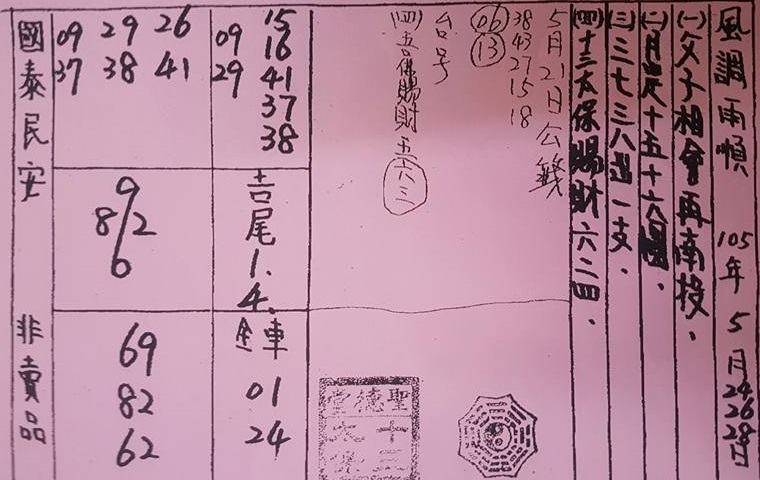 風調雨順 105年5月24 26 28日
(一)父子相會再南投.
(二)月是十五十六圓.
(三)三七三八選一支.
(四)十三太保賜財六二四.
5月21日公幾
38 43 27 15 18
06 13
台号
五六三
15 16 41 37 38
09 29
吉尾1.4.
金車
01
24
26 41
29 38
09 37
9
8/2
6
69
82
62
國泰民安 非賣品
聖德堂
十三
太保